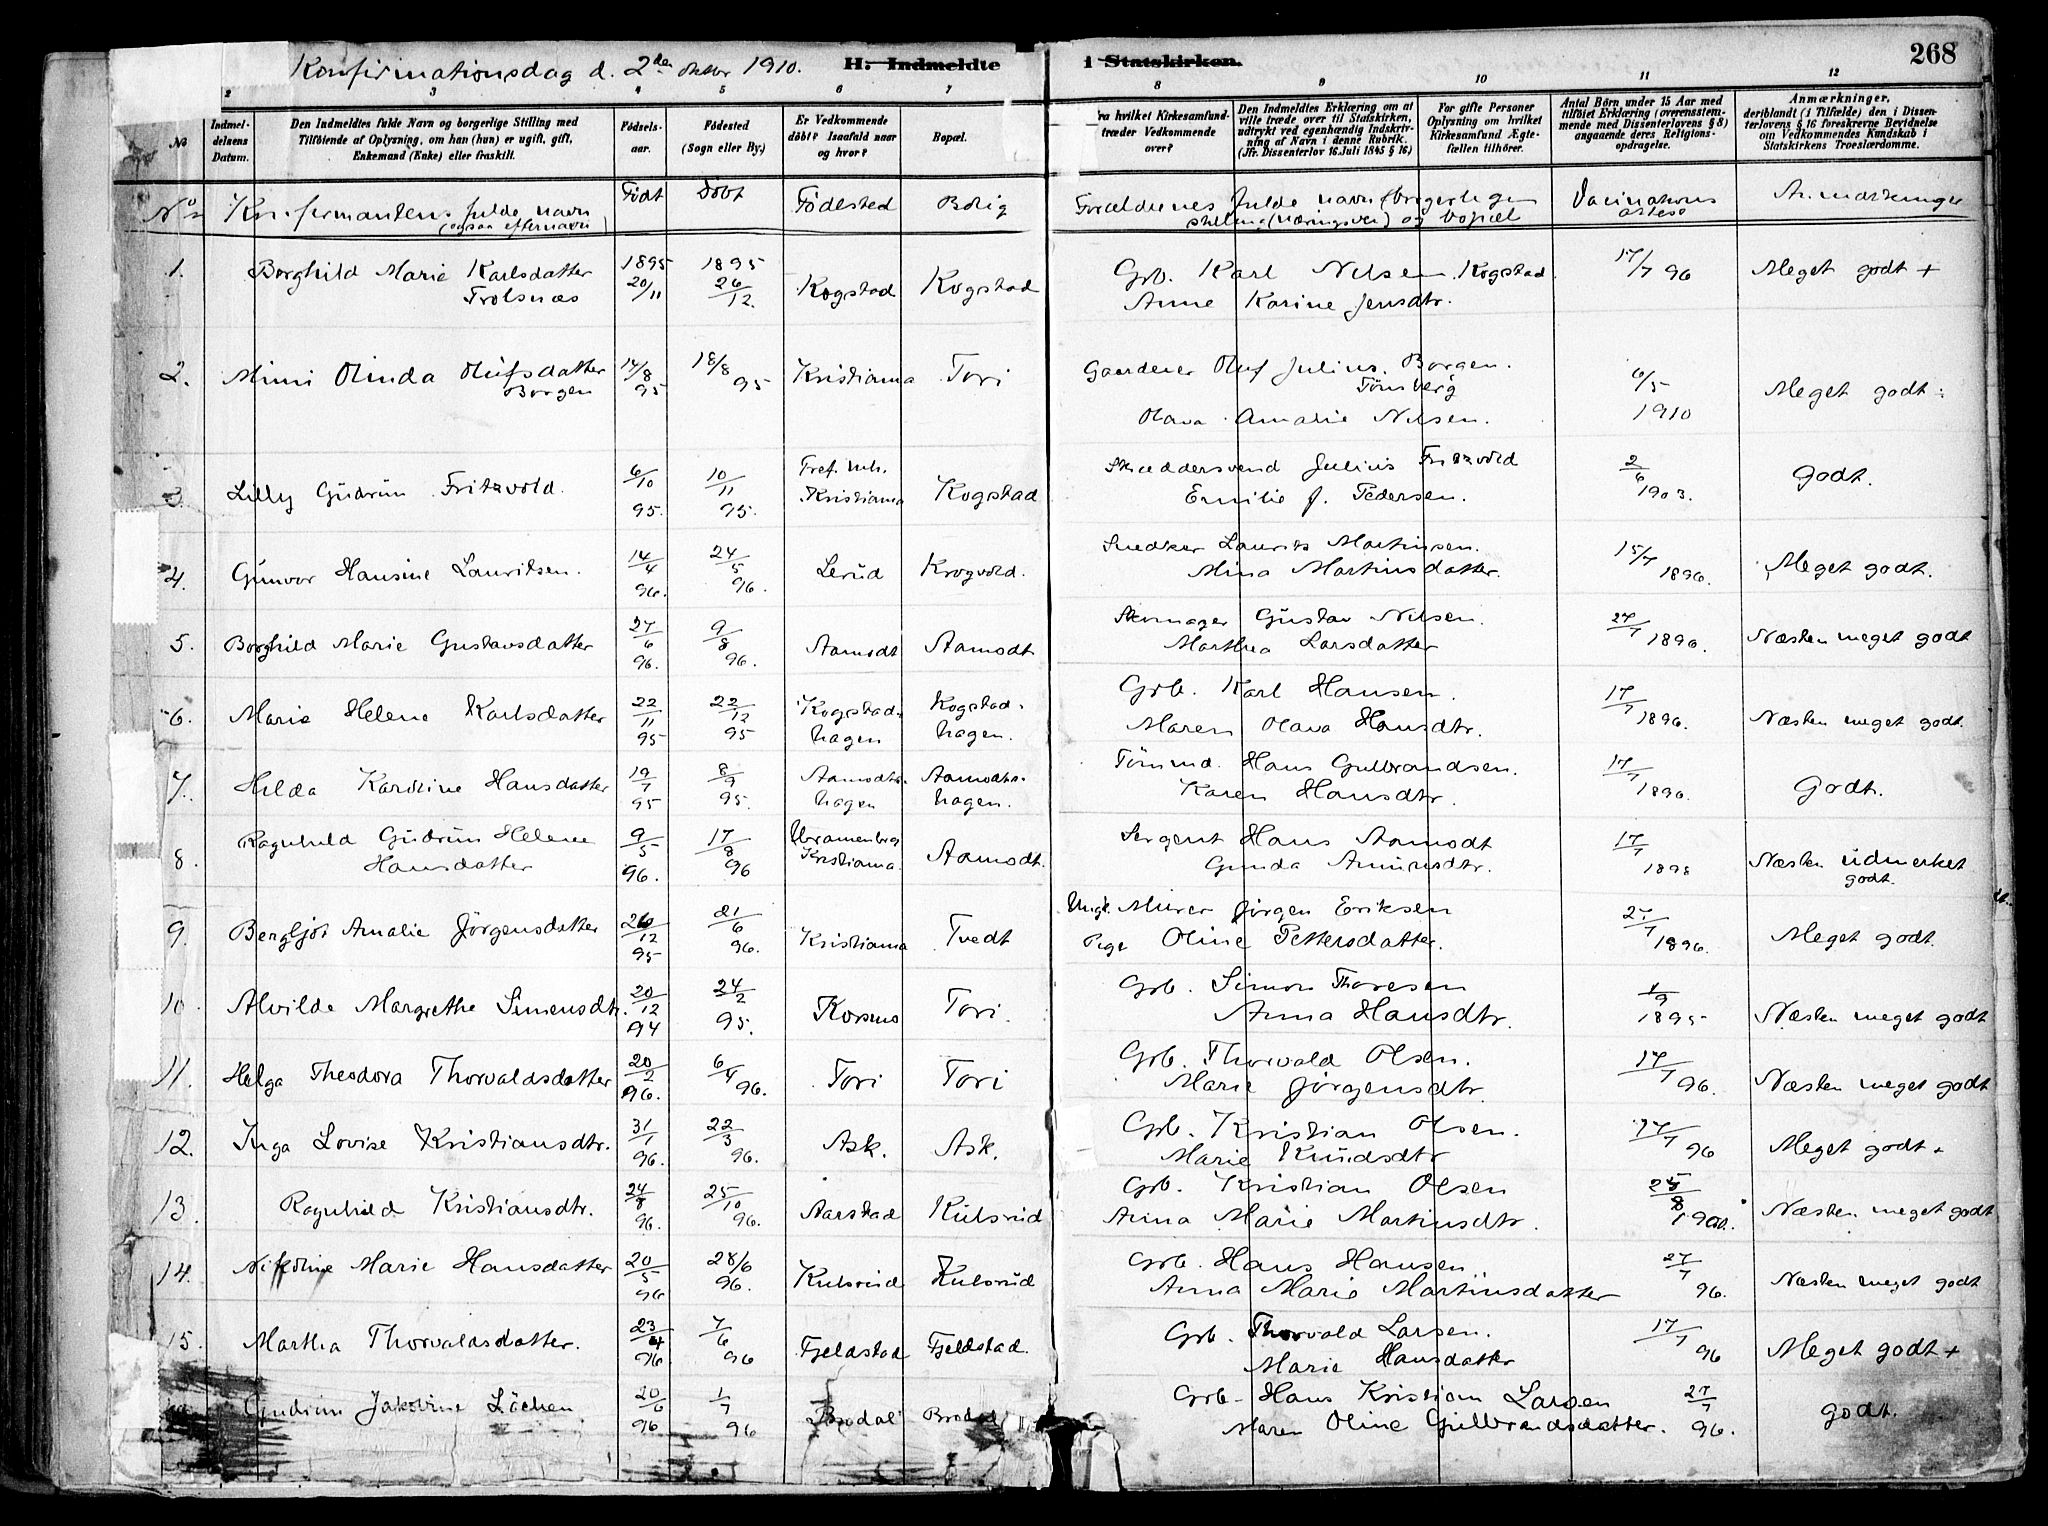 Konfirmationsdag d. 2den oktbr 1910. H. Indmeldte i Statskirken. 268
2 3 4 5 6 7 8 9 10 11 12
No
Indmel-
delsens
Datum.
Den Indmeldtes fulde Navn og borgerlige Stilling med
Tilföiende af Oplysning, om han (hun) er ugift, gift,
Enkemand (Enke) eller fraskilt.
Födsels-
aar.
Födested
(Sogn eller By.)
Er Vedkommende
döbt? Isaafald naar
og hvor?
Bopæl.
ra hvilket Kirkesamfund
træder Vedkommende
over?
Den Indmeldtes Erklæring om at
ville træde over til Statskirken,
udtrykt ved egenhændig Indskriv-
ning af Navn i denne Rubrik.
(Jfr. Dissenterlov 16. Juli 1845 § 16)
For gifte Personer
Oplysning om hvilket
Kirkesamfund Ægte-
fællen tilhörer.
Antal Börn under 15 Aar med
tilföiet Erklæring (overensstem-
mende med Dissenterlovens § 8)
angaaende deres Religions-
opdragelse.
Anmærkninger,
deriblandt (i Tilfælde) den i Dissen-
terlovens § 16 foreskrevne Bevidnelse
om Vedkommendes Kundskab i
Statskirkens Troeslærdomme.
No Konfirmantens fulde navn Födt Döbt Födested Bolig Forældrenes fulde navn (borgerlige Vacinations Anmærkninger
(ogsaa efternavn) stilling (næringsvei) og bopæl attest
1. Borghild Marie Karlsdatter 1895 1895 Grb. Karl Nilsen Kogstad 17/7 96 Meget godt +
Trolsnæs 20/11 26/12 Kogstad Kogstad Anne Karine Jensdtr.
2. Mimi Olinda Olufsdatter 14/8 18/8 Kristiania Tori Gaardeier Oluf Julius Borgen. 6/5
Borgen 95 95 Tönsberg Meget godt
Olava Amalie Nilsen. 1910
3. Lilly Gudrun Fritzvold. 6/10 10/11 Kristiania Kogstad Skræddersvend Julius Fritzvold 2/6 godt.
95. 95. Emilie J. Pedersen. 1903.
4. Gunvor Hansine Lauritsen. 14/4 24/5 Lerud Krogvold. Snedker Laurits Martinsen. 15/7 Meget godt.
96. 96. Mina Martinsdatter. 1896.
5. Borghild Marie Gustavsdatter 27/6 9/8 Aamodt Aamodt Skomager Gustav Nilsen. 27/7 Næsten meget godt
96. 96. Marthea Larsdatter 1896.
6. Marie Helene Karlsdatter 22/11 22/12 Kogstad- Kogstad- Grb. Karl Hansen. 17/7 Næsten meget godt.
95 95 hagen hagen. Maren Olava Hansdtr. 1896.
7. Helda Karoline Hansdatter 19/7 8/9 Aamodts- Aamodts- Tömmd. Hans Gulbrandsen. 17/7 Godt.
95 95. hagen hagen. Karen Hansdtr. 1896.
8. Ragnhild Gudrun Helene 9/5 17/8 Aamodt. Sergent Hans Aamodt 17/7 Næsten udmerket
Hansdatter 96. 96 Kristiania. 1898 godt.
9. Bergljot Amalie Jörgensdatter 26/12 21/6 Kristiania Tvedt Ungk. Murer Jörgen Eriksen 27/7 Meget godt.
95 96. Pige Oline Pettersdatter. 1896.
10. Alvilde Margrethe Simensdtr. 20/12 24/2 Korsmo Tori. Grb. Simon Thoresen 1/9 Næsten meget godt
94 95. Anna Hansdtr. 1895
11. Helga Theodora Thorvaldsdatter 20/2 6/4 Tori Tori Grb. Thorvald Olsen. 17/7 Næsten meget godt
96. 96. Marie Jörgensdtr. 96.
12. Inga Lovise Kristiansdtr. 31/1 22/3 Ask. Ask. Grb. Kristian Olsen. 17/7 Meget godt +
96. 96. Marie Knudsdtr 96
13. Ragnhild Kristiansdtr. 24/8 25/10 Aarstad Kulsrud Grb. Kristian Olsen Næsten meget godt
96. 96. Anna Marie Martinsdtr.
14. Nikoline Marie Hansdatter 20/5 28/6 Kulsrud Kulsrud Grb. Hans Hansen 27/7 Næsten meget godt
96 96. Anna Marie Martinsdatter 96.
15. Martha Thorvaldsdatter. 23/4 7/6 Fjeldstad Fjeldstad. Grb. Thorvald Larsen. 17/7 Meget godt +
96 96 Marie Hansdatter 96
Gudrun Jakobine Löchen 20/6 1/7 Brodal Brodal Grb. Hans Kristian Larsen 27/7 godt.
96 96 Maren Oline Gulbrandsdatter. 96.